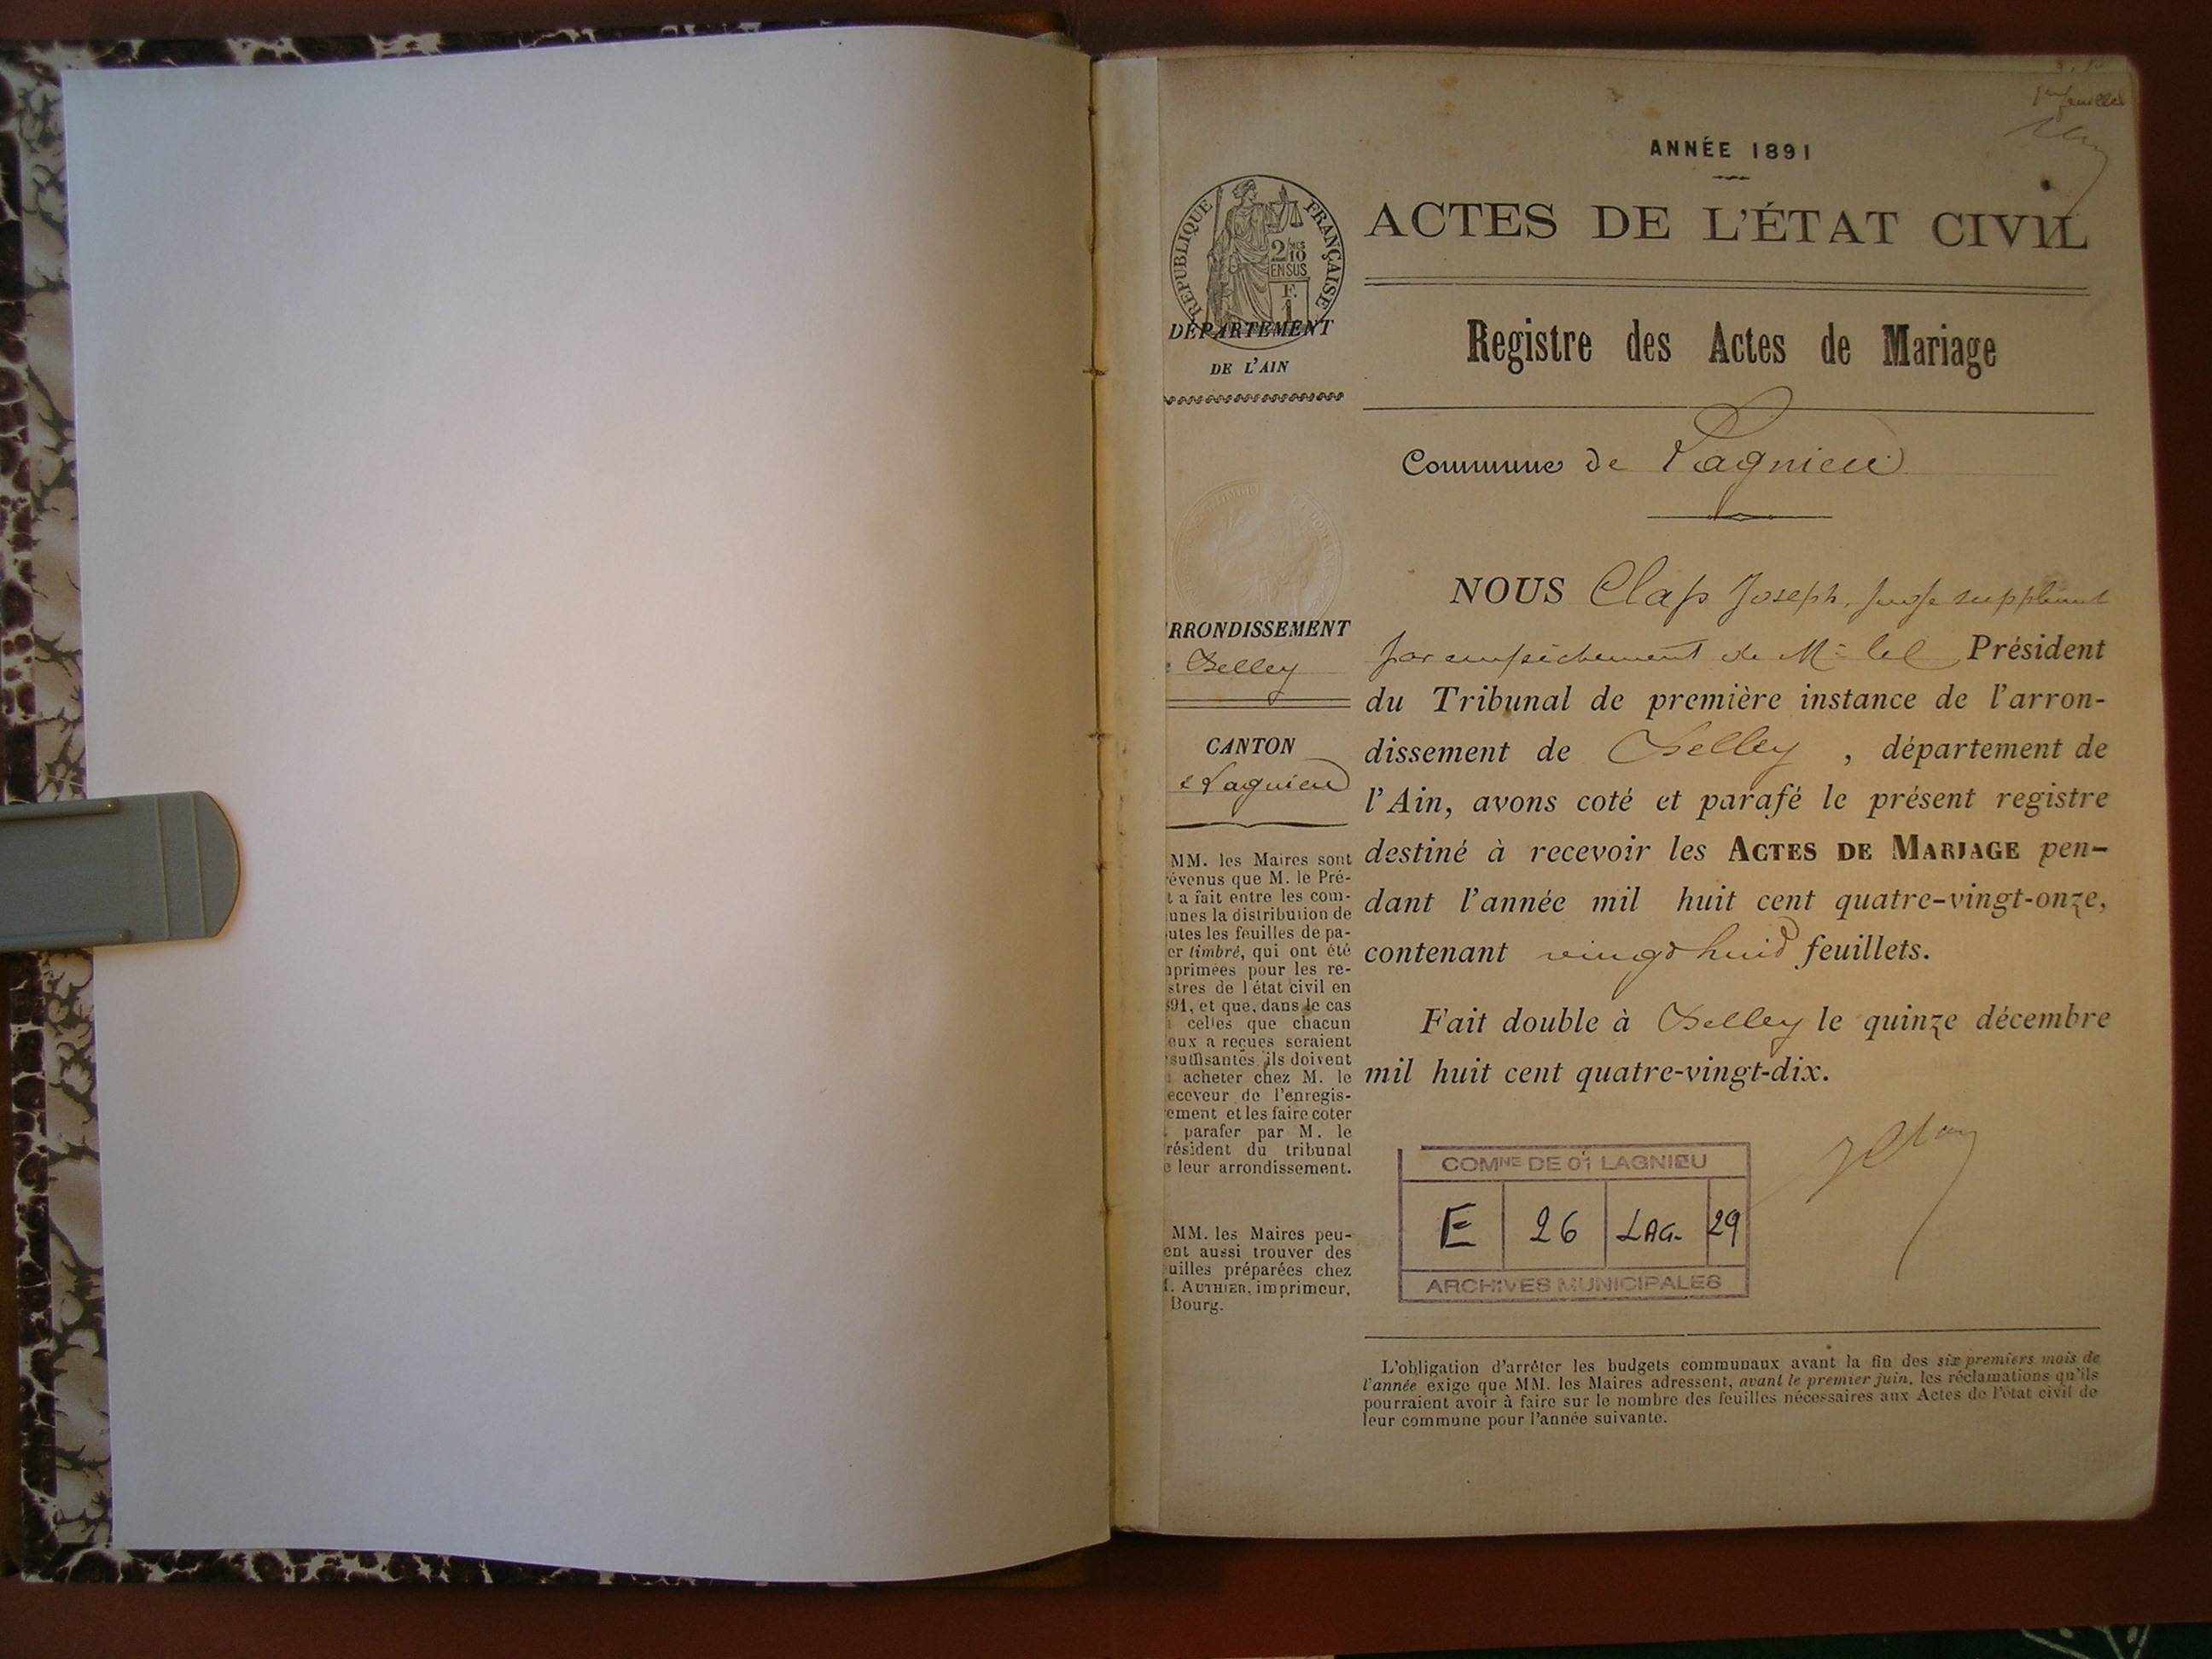 1er feuillet
ANNÉE 1891
ACTES DE L'ÉTAT CIVIL
RÉPUBLIQUE FRANÇAISE
2/10
EN SUS
F.
1
DÉPARTEMENT
DE L'AIN
Registre des Actes de Mariage
Commune de Lagnieu
RRONDISSEMENT
Belley
CANTON
Lagnieu
MM. les Maires sont
évenus que M. le Pré-
t a fait entre les com-
unes la distribution de
utes les feuilles de pa-
er timbré, qui ont été
primées pour les re-
stres de l'état civil en
91, et que, dans le cas
celles que chacun
eux a reçues seraient
suffisantes ils doivent
acheter chez M. le
eceveur de l'enregis-
ement et les faire coter
parafer par M. le
résident du tribunal
e leur arrondissement.
MM. les Maires peu-
ent aussi trouver des
uilles préparées chez
. AUTHIER, imprimeur,
Bourg.
NOUS Clap Joseph, juge suppléant
par empêchement de Mr le Président
du Tribunal de première instance de l'arron-
dissement de Belley, département de
l'Ain, avons coté et parafé le présent registre
destiné à recevoir les ACTES DE MARIAGE pen-
dant l'année mil huit cent quatre-vingt-onze,
contenant vingt huit feuillets.
Fait double à Belley le quinze décembre
mil huit cent quatre-vingt-dix.
COMNE DE 01 LAGNIEU
E 26 LAG. 29
ARCHIVES MUNICIPALES
L'obligation d'arrêter les budgets communaux avant la fin des six premiers mois de
l'année exige que MM. les Maires adressent, avant le premier juin, les réclamations qu'ils
pourraient avoir à faire sur le nombre des feuilles nécessaires aux Actes de l'état civil de
leur commune pour l'année suivante.